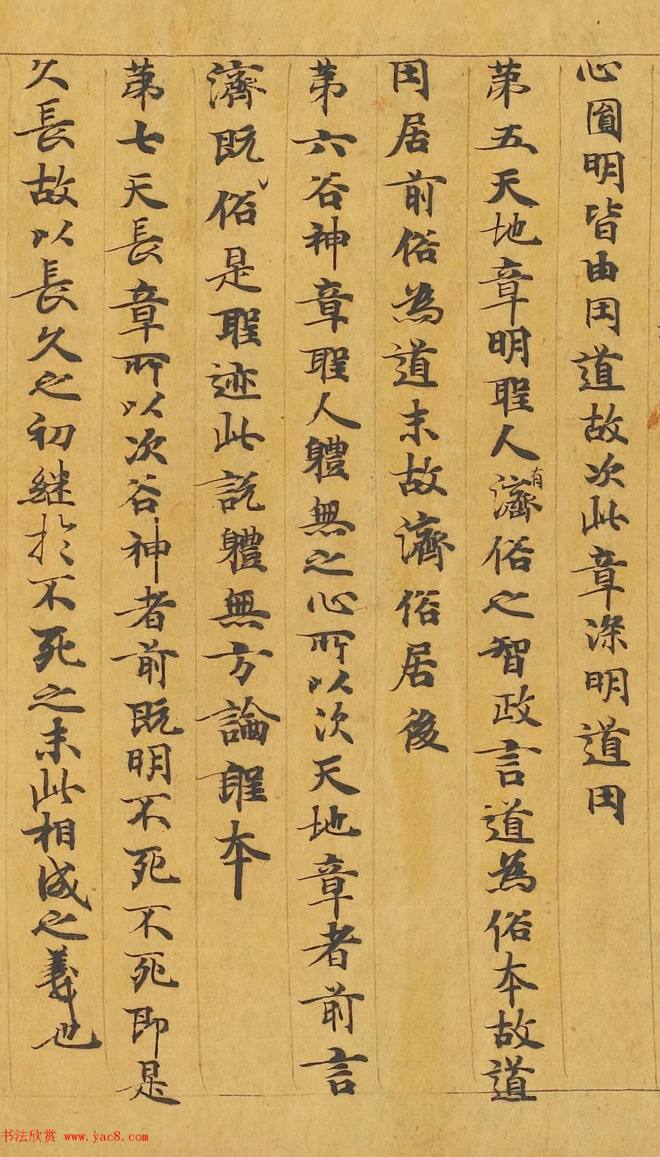 心圓明皆由因道故次此章深明道因
第五天地章明聖人有濟俗之智政言道為俗本故道
因居前俗為道末故濟俗居後
第六谷神章聖人體無之心所以次天地章者前言
濟既俗是聖迹此説體無方論聖本
第七天長章所以次谷神者前既明不死不死即是
久長故以長久之初継於不死之末此相成之義也
书法欣赏 www.yac8.com